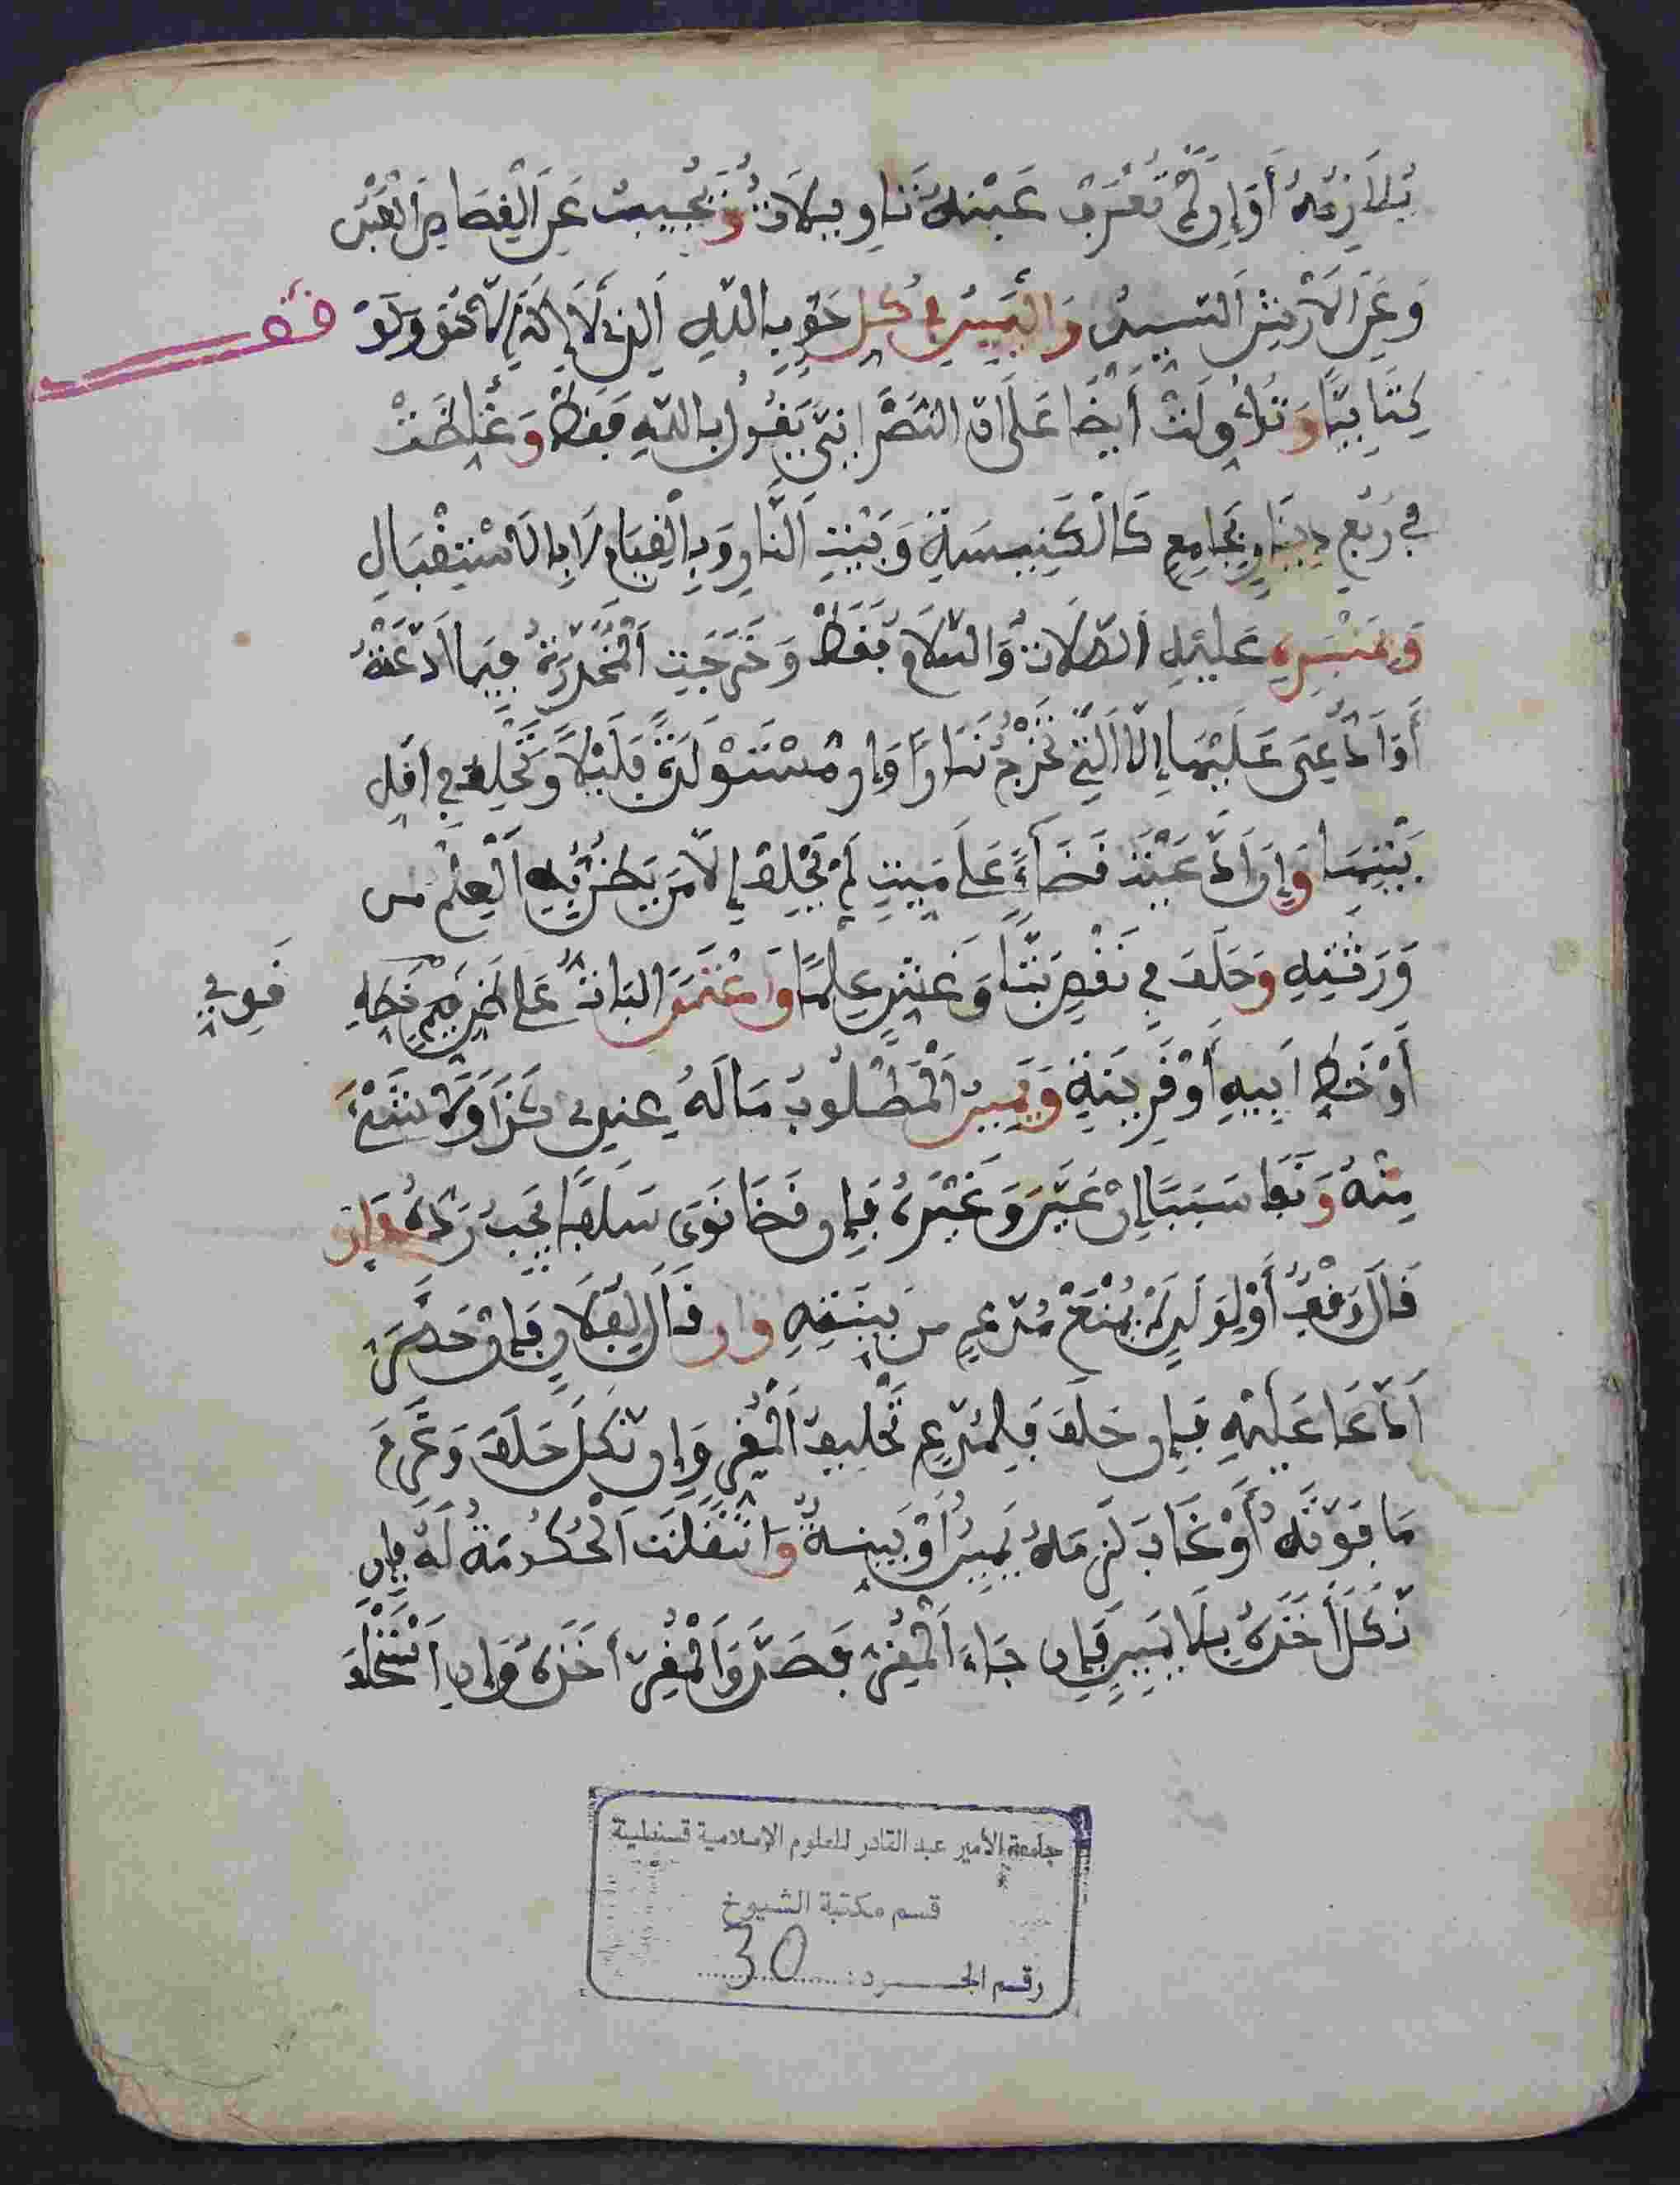 بُطْلَانَهُ أَوْ إِنْ لَمْ تُعْرَفْ عَيْنُهُ تَأْوِيلَانِ وَيُجِيبُ عَنِ الْقِصَاصِ الْعَبْدُ
وَعَنِ الْأَرْشِ السَّيِّدُ وَالْيَمِينُ فِي كُلِّ حَقٍّ بِاللَّهِ الَّذِي لَا إِلَهَ إِلَّا هُوَ وَلَوْ
كِتَابِيًّا وَتُؤُوِّلَتْ أَيْضًا عَلَى أَنَّ النَّصْرَانِيَّ يَقُولُ بِاللَّهِ فَقَطْ وَغُلِّظَتْ
فِي رُبُعِ دِينَارٍ بِجَامِعٍ كَالْكَنِيسَةِ وَبَيْتِ النَّارِ وَبِالْقِيَامِ لَا بِالِاسْتِقْبَالِ
وَبِمِنْبَرِهِ عَلَيْهِ الصَّلَاةُ وَالسَّلَامُ فَقَطْ وَخَرَجَتِ الْمُخَدَّرَةُ فِيمَا ادَّعَتْ
أَوِ ادُّعِيَ عَلَيْهَا إِلَّا الَّتِي تَخْرُجُ نَهَارًا وَإِنْ مُسْتَوْلَدَةً فَلَيْلًا وَتُحَلَّفُ فِي أَقَلَّ
بِبَيْتِهَا وَإِنِ ادَّعَيْتَ قَضَاءً عَلَى مَيِّتٍ لَمْ يَحْلِفْ إِلَّا مَنْ يُظَنُّ بِهِ الْعِلْمُ مِنْ
وَرَثَتِهِ وَحَلَفَ فِي نَقْصٍ بَتًّا وَغِشٍّ عِلْمًا وَاعْتَمَدَ الْبَاتُّ عَلَى ظَنٍّ قَوِيٍّ كَخَطِّهِ
قوي
أَوْ خَطِّ أَبِيهِ أَوْ قَرِينَةٍ وَيَمِينُ الْمَطْلُوبِ مَا لَهُ عِنْدِي كَذَا وَلَا شَيْءَ
مِنْهُ وَنَفَا سَبَبًا إِنْ عُيِّنَ وَغَيْرَهُ فَإِنْ قَضَا نَوَى سَلَفًا يَجِبُ رَدُّهُ وَإِنْ
قَالَ وَقْفٌ أَوْ لِوَلَدِي لَمْ يُمْنَعْ مُدَّعٍ مِنْ بَيِّنَتِهِ وَإِنْ قَالَ لِفُلَانٍ فَإِنْ حَضَرَ
ادَّعَا عَلَيْهِ فَإِنْ حَلَفَ فَلِلْمُدَّعِي تَحْلِيفُ الْمُقِرِّ وَإِنْ نَكَلَ حَلَفَ وَغَرِمَ
مَا فَوَّتَهُ أَوْ غَابَ لَزِمَهُ يَمِينٌ أَوْ بَيِّنَةٌ وَانْتَقَلَتِ الْحُكُومَةُ لَهُ فَإِنْ
نَكَلَ أَخَذَهُ بِلَا يَمِينٍ فَإِنْ جَاءَ الْمُقَرُّ فَصَدَّقَ الْمُقِرَّ أَخَذَهُ وَإِنِ اسْتَحْلَفَ
جامعة الأمير عبد القادر للعلوم الإسلامية قسنطينة
قسم مكتبة الشيوخ
رقم الجـــرد : 30